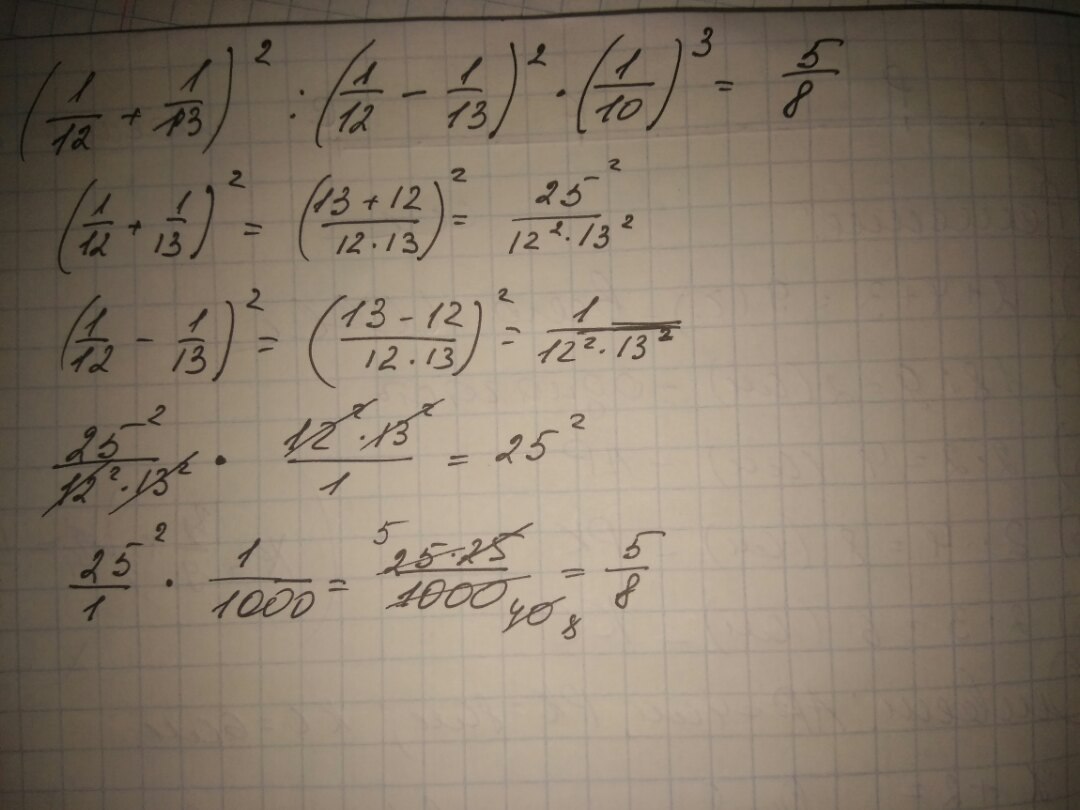 (1/12 + 1/13)² : (1/12 − 1/13)² · (1/10)³ = 5/8
(1/12 + 1/13)² = ((13 + 12)/(12·13))² = 25²/(12²·13²)
(1/12 − 1/13)² = ((13 − 12)/(12·13))² = 1/(12²·13²)
25²/(12²·13²) · (12²·13²)/1 = 25²
25²/1 · 1/1000 = 5 25·25/1000 40 8 = 5/8